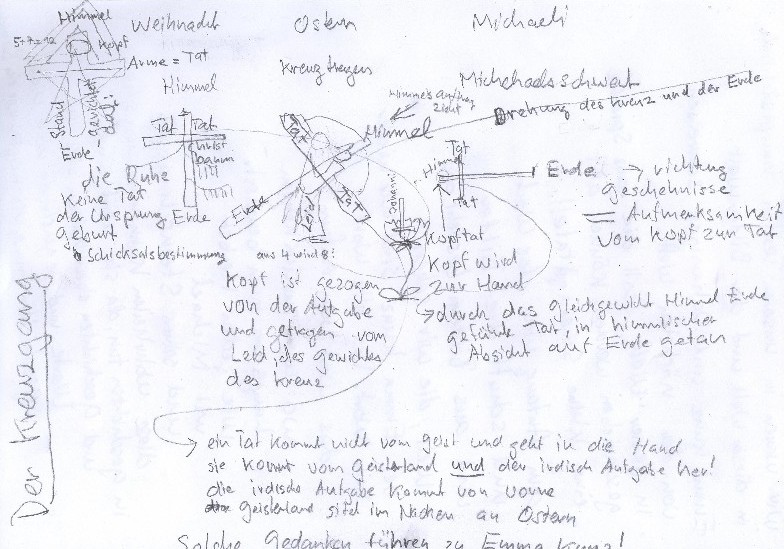 Himmel
Weihnacht
Ostern
Michaeli
5+7=12
Kopf
Arme = Tat
Kreuztragen
Michaelsschwert
Himmel
Himmelsanhang
zieht
Drehung des Kreuz und der Erde
Stand
Erde
Tat
Tat
Christ
baum
Tat
Himmel
Tat
Himmel
Tat
Erde
→ richtung
Geschehnisse
= Aufmerksamkeit
vom Kopf zur Tat
die Ruhe
keine Tat
der Ursprung
Geburt
Erde
↳ Schicksalsbestimmung
Erde
Leid
Tat
Johanni
aus 4 wird 8!
Kopftat
Kopf wird
zur Hand
Kopf ist gezogen
von der Aufgabe
und getragen vom
Leid des Gewichtes
des Kreuz
→ durch das gleichgewicht Himmel Erde
geführte Tat, in himmlischer
Absicht auf Erde getan
Der Kreuzgang
→ ein Tat kommt nicht vom geist und geht in die Hand
sie kommt vom Geisterland und der irdisch Aufgabe her!
die irdische Aufgabe kommt von vorne
Geisterland sitzt im Nacken an Ostern
Solche Gedanken führen zu Emma Kunz!